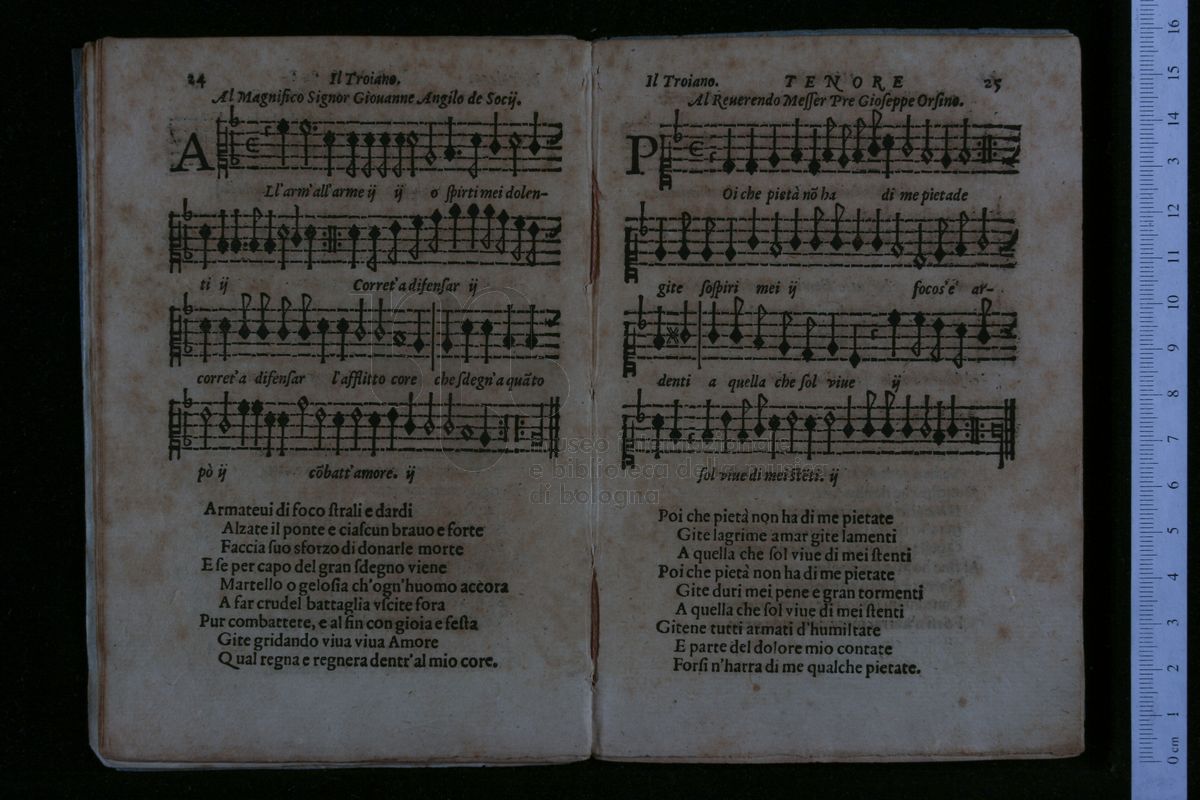 24 Il Troiano.
Al Magnifico Signor Giouanne Angilo de Socij.
A
Ll'arm'all'arme ij ij o spirti mei dolen-
ti ij Corret'a difensar ij
corret'a difensar l'afflitto core che sdegn'a quāto
pò ij cōbatt'amore. ij
Armateui di foco strali e dardi
Alzate il ponte e ciascun brauo e forte
Faccia suo sforzo di donarle morte
E se per capo del gran sdegno viene
Martello o gelosia ch'ogn'huomo accora
A far crudel battaglia vscite fora
Pur combattete, e al fin con gioia e festa
Gite gridando viua viua Amore
Qual regna e regnera dentr'al mio core.
Il Troiano. TENORE 25
Al Reuerendo Messer Pre Gioseppe Orsino.
P
Oi che pietà nō ha di me pietade
gite sospiri mei ij focos'e' ar-
denti a quella che sol viue ij
sol viue di mei stēti. ij
Poi che pietà non ha di me pietate
Gite lagrime amar gite lamenti
A quella che sol viue di mei stenti
Poi che pietà non ha di me pietate
Gite duri mei pene e gran tormenti
A quella che sol viue di mei stenti
Gitene tutti armati d'humiltate
E parte del dolore mio contate
Forsi n'harra di me qualche pietate.
museo internazionale
e biblioteca della musica
di bologna
0 cm 1 2 3 4 5 6 7 8 9 10 11 12 13 14 15 16